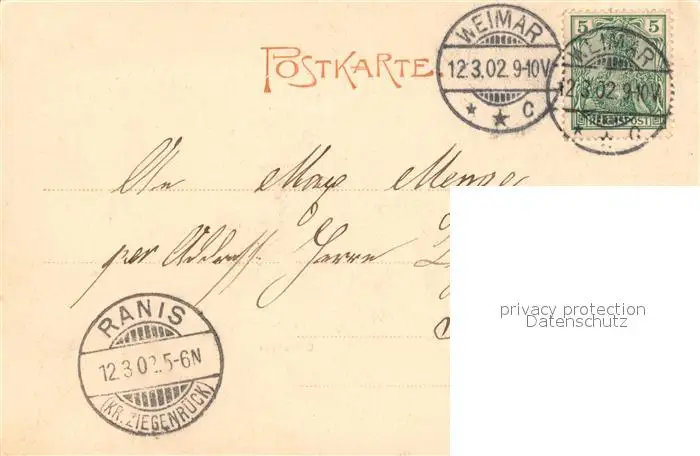 WEIMAR
12.3.02 9-10V
* * C
5 5
REICHSPOST
WEIMAR
12.3.02 9-10V
* * C
POSTKARTE
An Max
per Adress. Herrn
privacy protection
Datenschutz
RANIS
12.3.02.5-6N
(KR. ZIEGENRÜCK)